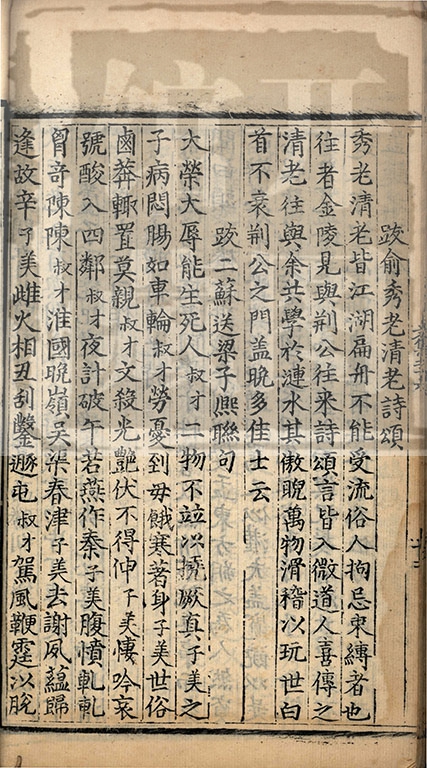 跋俞秀老清老詩頌
秀老清老皆江湖扁舟不能受流俗人拘忌束縛者也
往者金陵見與荆公往來詩頌言皆入微道人喜傳之
清老往與余共學於漣水其傲睨萬物滑稽以玩世白
首不衰荆公之門盖晚多佳士云
跋二蘇送梁子熙聯句
大榮大辱能生死人叔才二物不竝以撓厥真子美之
子病悶腸如車輪叔才勞憂到毋餓寒著身子美世俗
鹵莽輙置莫親叔才文殺光艷伏不得伸子美悽吟哀
號酸入四鄰叔才夜計破午若燕作秦子美腹憤軋軋
胷奇陳陳叔才淮國晚嶺吴渠春津子美去謝夙藴歸
逢故辛子美雌火相丑刻鑿遯屯叔才駕風鞭霆以脫